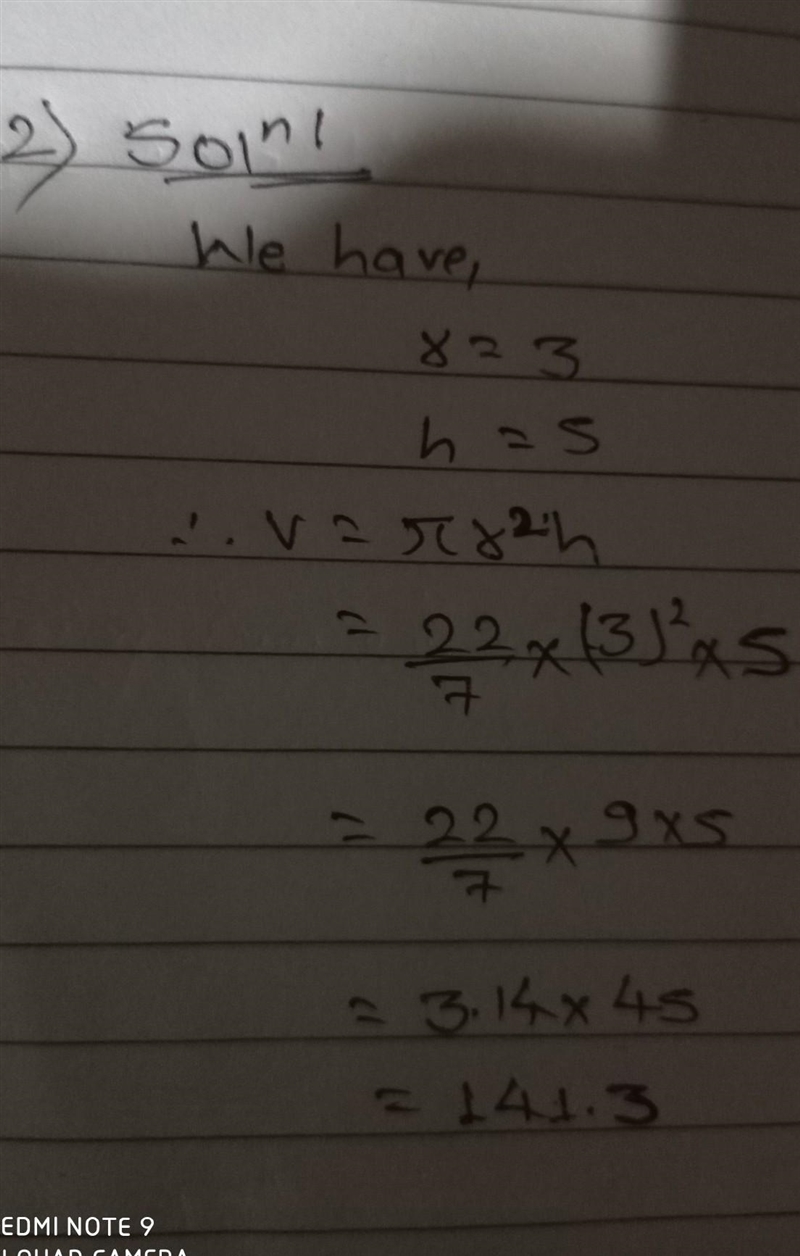 2) Solⁿ!
We have,
r = 3
h = 5
∴ V = πr²h
= 22/7 × (3)² × 5
= 22/7 × 9 × 5
= 3.14 × 45
= 141.3
EDMI NOTE 9